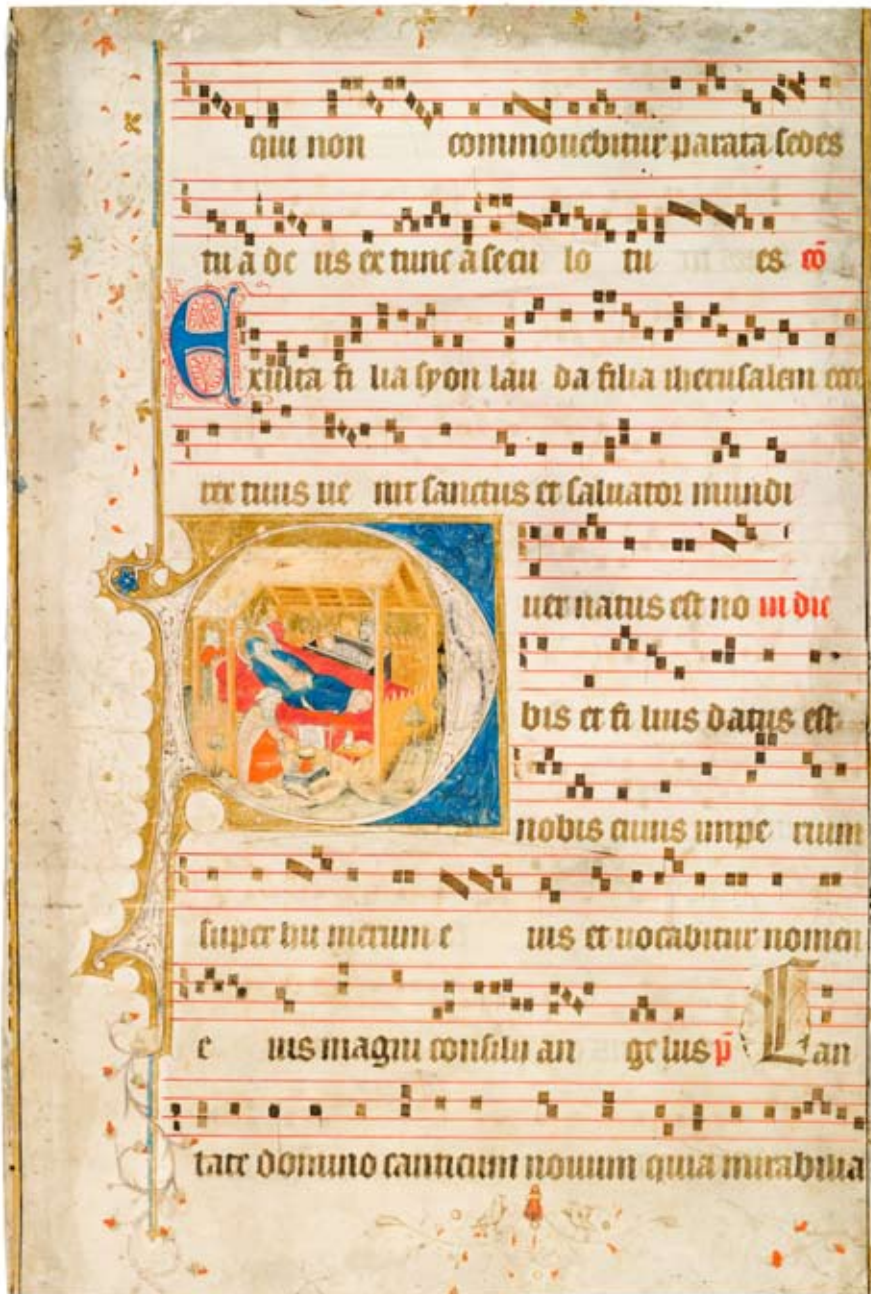 qui non commouebitur parata sedes
tu a de us ex tunc a secu lo tu es cō
Exulta fi lia syon lau da filia iherusalem ecce
rex tuus ue nit sanctus et saluator mundi
Puer natus est no in die
bis et fi lius datus est
nobis cuius impe rium
super hu merum e ius et uocabitur nomen
e ius magni consilii an ge lus p̄ Can
tate domino canticum nouum quia mirabilia